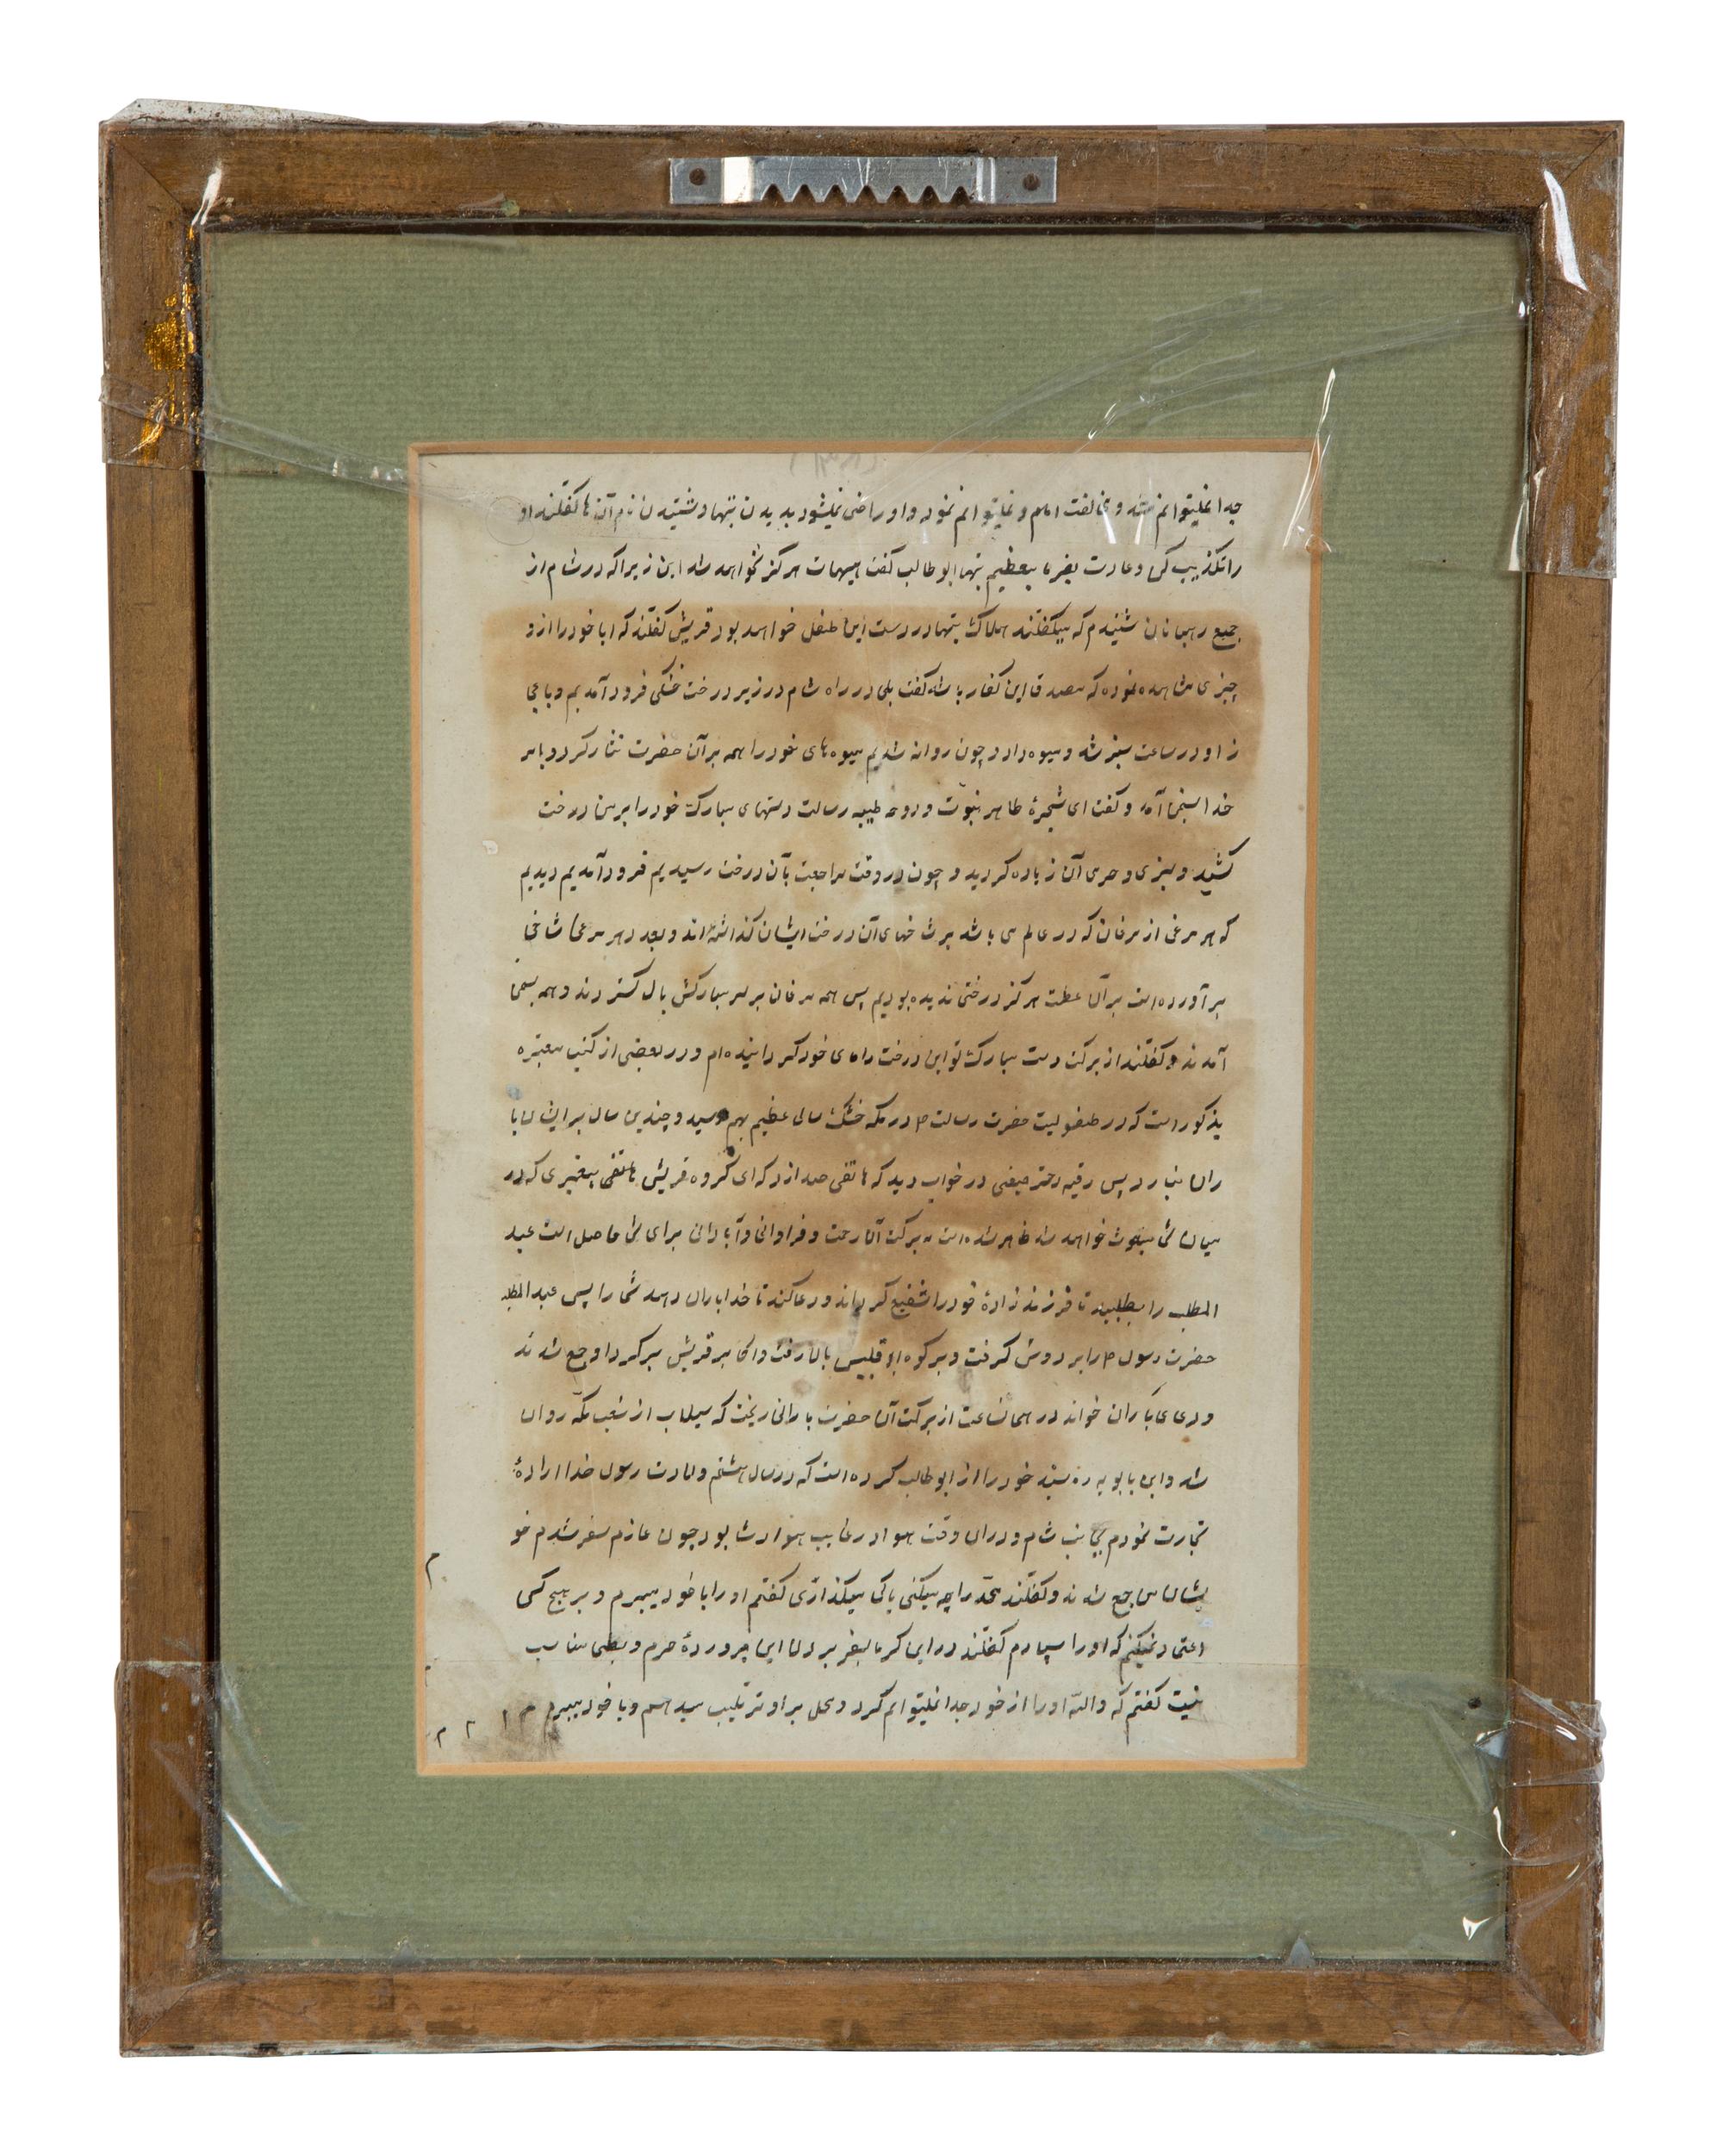 جدا نمیتوانم شد و مخالفت امام و نمیتوانم نمود و او راضی نمیشود بدیدن بتها و شنیدن نام آن ها گفتند او
را تکذیب کن و عادت بفرما بتعظیم بتها ابوطالب گفت هیهات هرگز نخواهد شد این زیرا که در شام از
جمیع رهبانان شنیدم که میگفتند هلاک بتها در دست این طفل خواهد بود قریش گفتند که ایا خود را از و
چیزی مشاهده نموده که مصدق این گفتار باشد گفت بلی در راه شام در زیر درخت خشکی فرود آمدیم و باعجا
ز او در ساعت سبز شد و میوه داد و چون روانه شدیم میوه های خود را همه بر آن حضرت نثار کرد و بامر
خدا بسخن آمد و گفت ای شجرهٔ طاهر نبوت و دوحه طیبه رسالت دستهای مبارکت خود را بر من درخت
کشید و سبزی و خرمی آن زیاده گردید و چون در وقت مراجعت بآن درخت رسیدیم فرود آمدیم دیدیم
که هر مرغی از مرغان که در عالم می باشد بر شاخهای آن درخت اشیان گذاشته اند و بعدد هر مرغی شاخی
بر آورده است بر آن عظمت هرگز درختی ندیده بودیم پس همه مرغان بر سر مبارکش بال گستردند و همه بسخن
آمدند و گفتند از برکت دست مبارکت تو این درخت را مأوای خود گردانیده ام و در بعضی از کتب معتبره
مذکور است که در طفولیت حضرت رسالت ص در مکه خشک سالی عظیم بهم رسید و چندین سال بر ایشان با
ران نبارد پس رقیه دختر صیفی در خواب دید که هاتفی صدا زد که ای گروه قریش هاتفی پیغمبری که در
میان شما مبعوث خواهد شد ظاهر شده است به برکت آن رحمت و فراوانی و آبادانی برای شما حاصل است عبد
المطلب را بطلبید تا فرزند زادهٔ خود را شفیع گرداند و دعا کند تا خدا باران دهد شما را پس عبدالمطلب
حضرت رسول ص را بر دوش گرفت و بر کوه ابو قبیس بالا رفت و اکابر قریش بر گرد او جمع شدند
و دعای باران خواند در همان ساعت از برکت آن حضرت بارانی ریخت که سیلاب از شعب مکّه روان
شد و ابن بابویه ره بسند خود را از ابوطالب کرده است که در سال هشتم ولادت رسول خدا ارادهٔ
تجارت نمودم بجانب شام و دران وقت هوا در غایب هوا دشا بود چون عازم سفر شدم خو
یشان من جمع شدند و گفتند محمّد را چه میکنی با کی میگذاری گفتم او را با خود میبرم و بر هیچ کس
اعتماد نمیکنم که او را سپارم گفتند در این گرما بسفر بردن این پرورده حرم و بطحی مناسب
نیست گفتم که والله او را از خود جدا نمیتوانم کرد و محمل بر او ترتیب میدهم و با خود میبرم